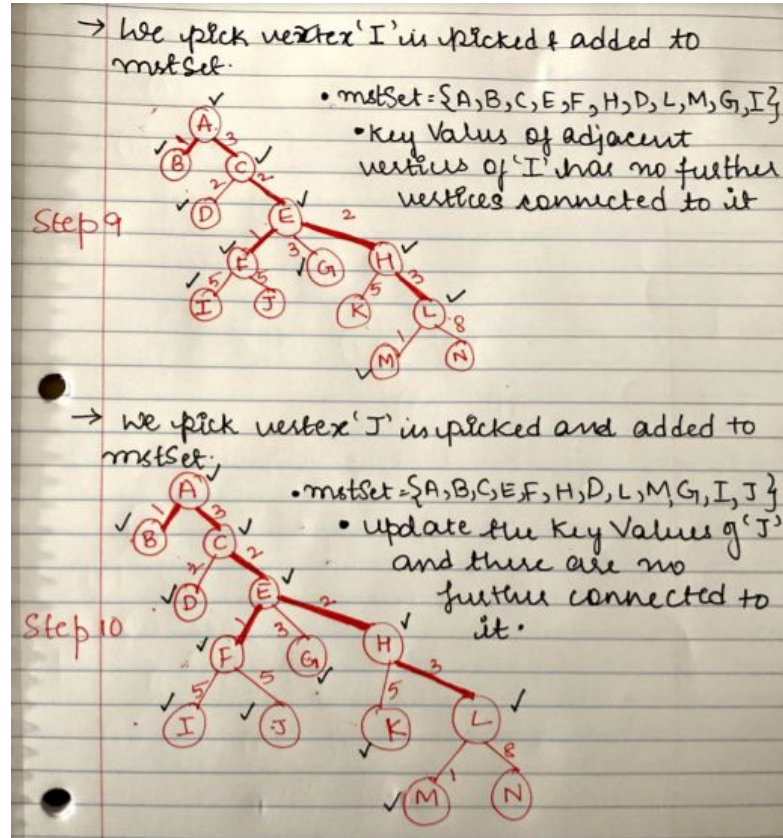 → We pick vertex 'I' is picked & added to
mstSet.
• mstSet = {A, B, C, E, F, H, D, L, M, G, I}
• Key Value of adjacent
vertices of 'I' has no further
vertices connected to it
Step 9
A
1 3
B C
2 2
D E
1 3 2
F G H
5 5 5 3
I J K L
1 8
M N
→ We pick vertex 'J' is picked and added to
mstSet.
• mstSet = {A, B, C, E, F, H, D, L, M, G, I, J}
• update the Key Values of 'J'
and there are no
further connected to
it.
Step 10
A
1 3
B C
2 2
D E
1 3 2
F G H
5 5 5 3
I J K L
1 8
M N